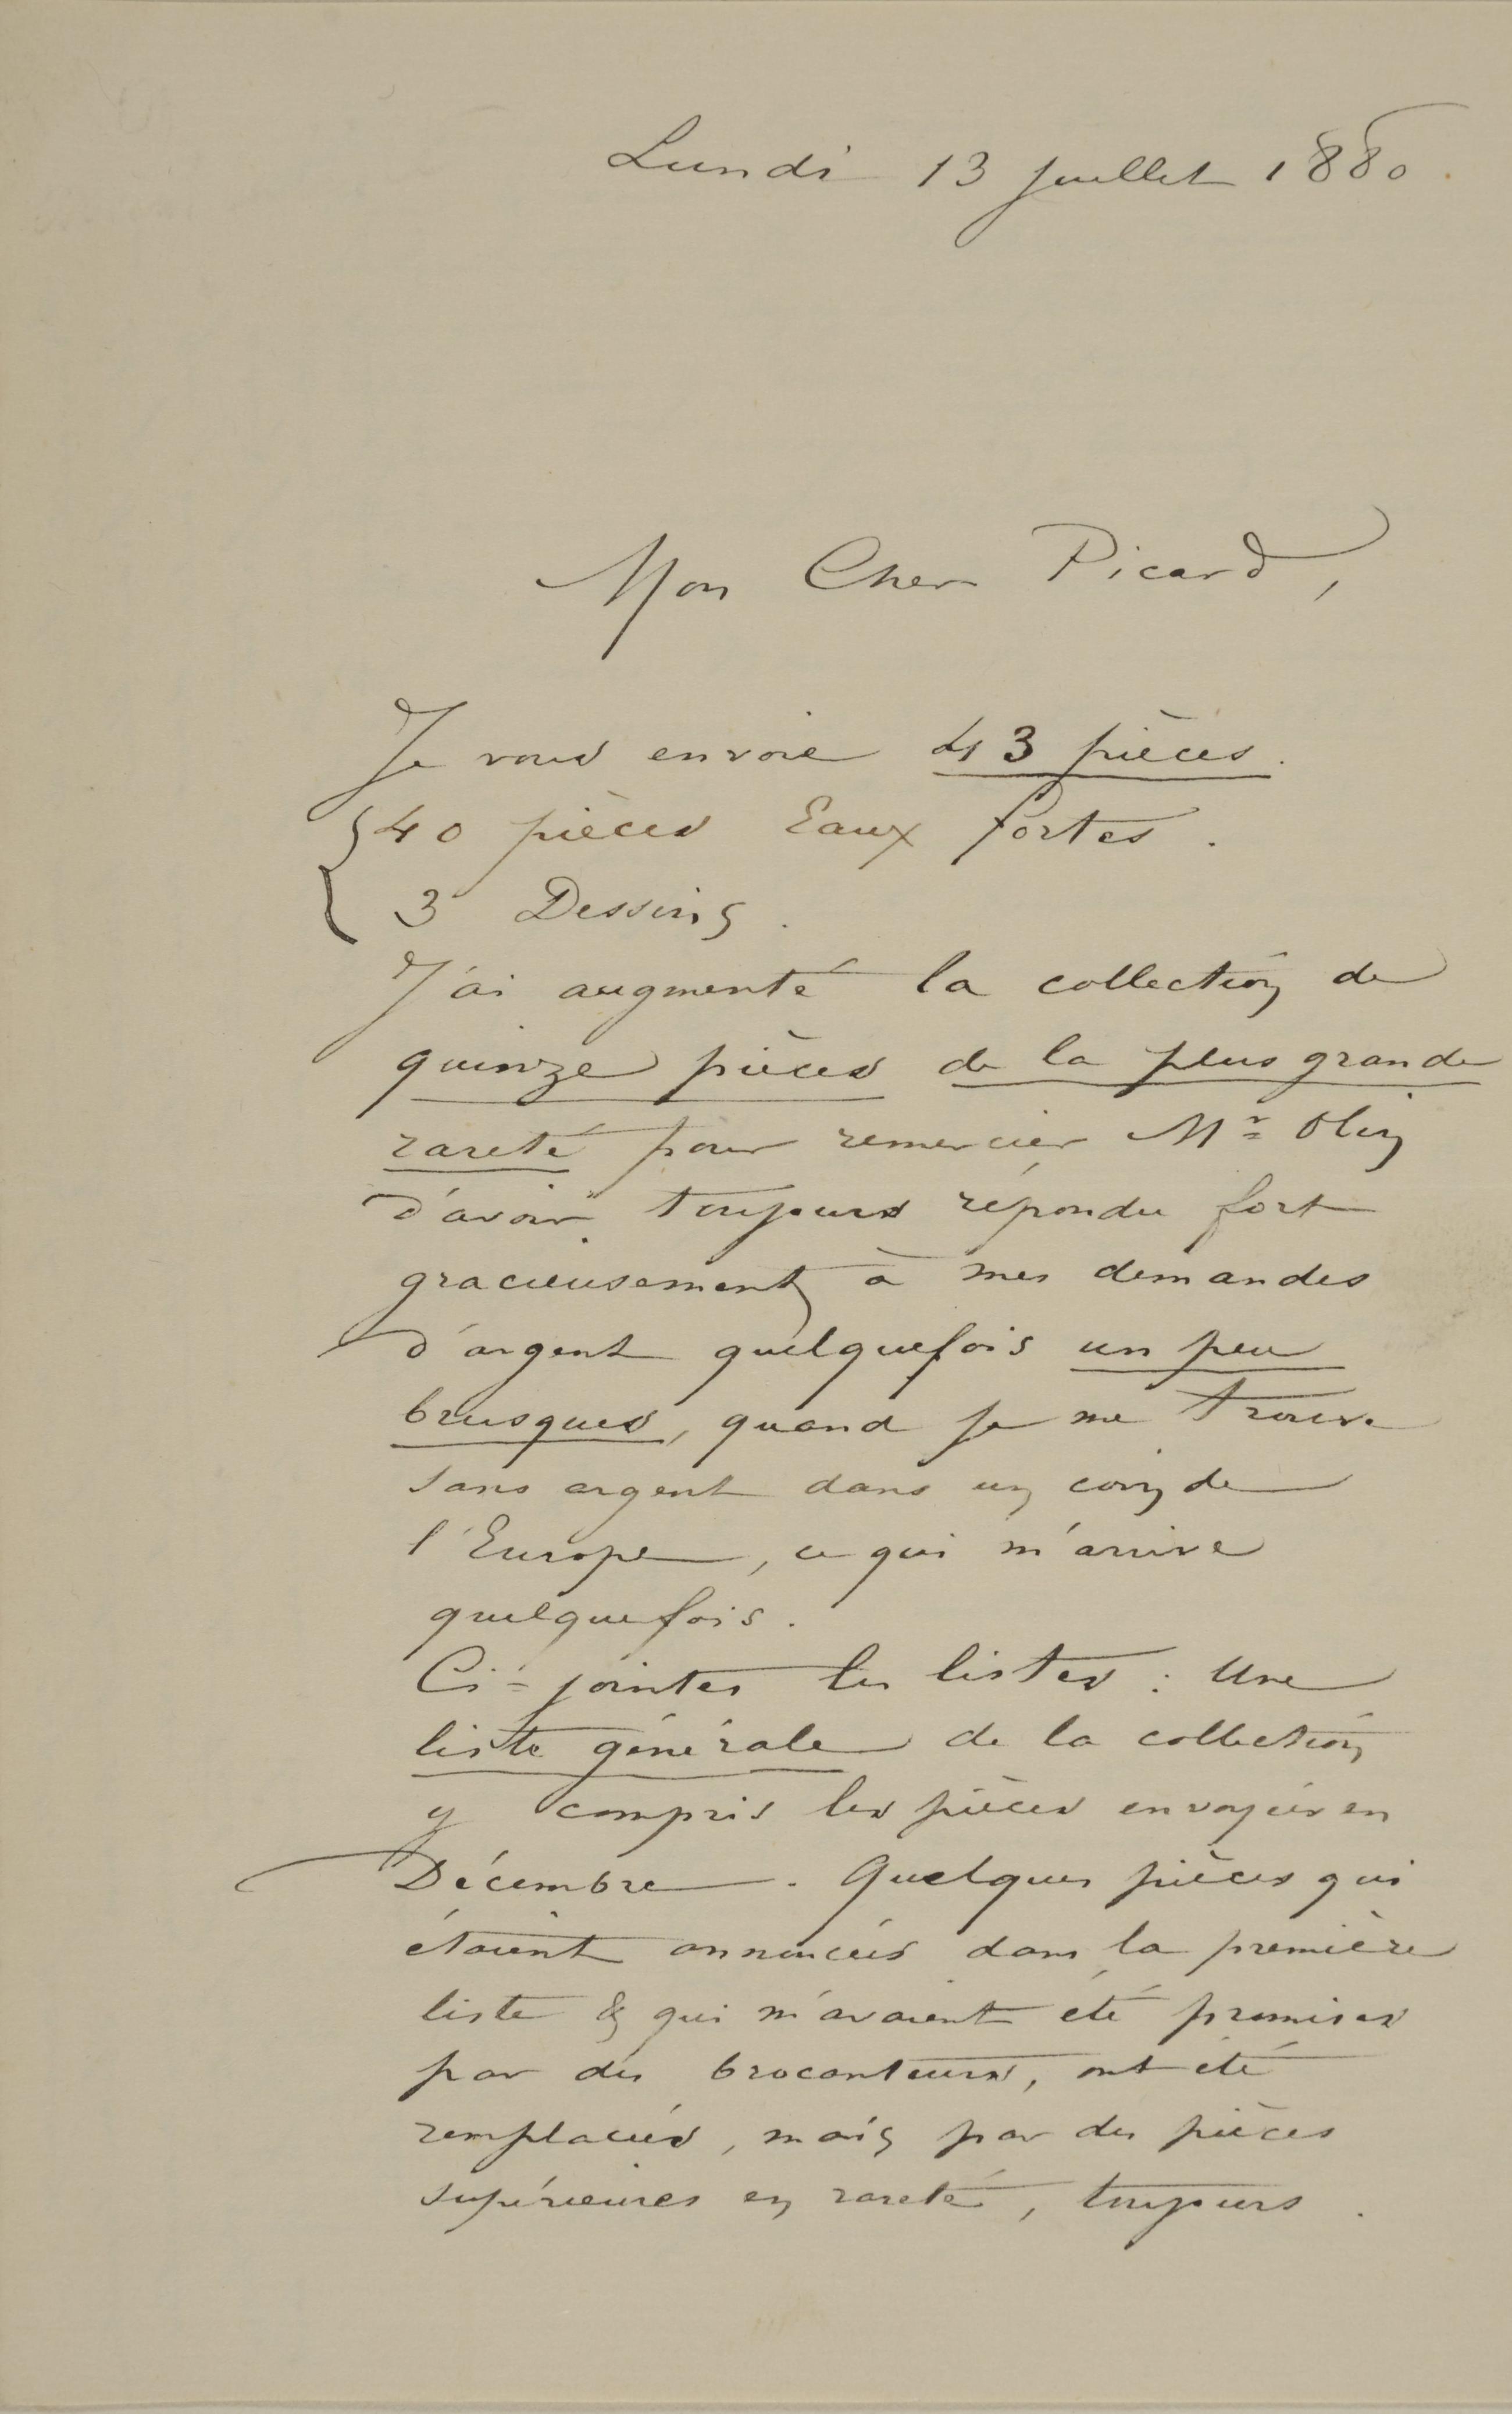 Lundi 13 juillet 1880.
Mon Cher Picard,
Je vous envoie 43 pièces.
40 pièces Eaux fortes.
3 Dessins.
J'ai augmenté la collection de
quinze pièces de la plus grande
rareté pour remercier Mr Olin
d'avoir toujours répondu fort
gracieusement à mes demandes
d'argent quelquefois un peu
brusques, quand je me trouve
sans argent dans un coin de
l'Europe, ce qui m'arrive
quelquefois.
Ci-jointes les listes : Une
liste générale de la collection
y compris les pièces envoyées en
Décembre. Quelques pièces qui
étaient annoncées dans la première
liste & qui m'avaient été promises
par des brocanteurs, ont été
remplacées, mais par des pièces
supérieures en rareté, toujours.